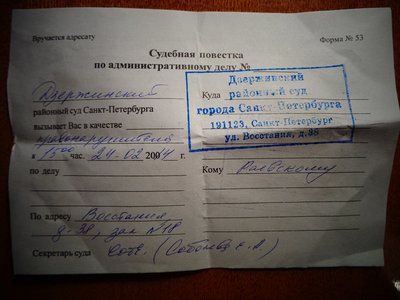 Вручается адресату
Форма № 53
Судебная повестка
по административному делу №
Дзержинский
районный суд Санкт-Петербурга
вызывает Вас в качестве
правонарушителя
к 15 00 час. 24-02 2004 г.
по делу
По адресу Восстания,
д. 38, зал №18
Секретарь суда Соб. (Соболева Е.А.)
Куда
Дзержинский
районный суд
города Санкт-Петербурга
191123, Санкт-Петербург
ул. Восстания, д.38
Кому Раевскому